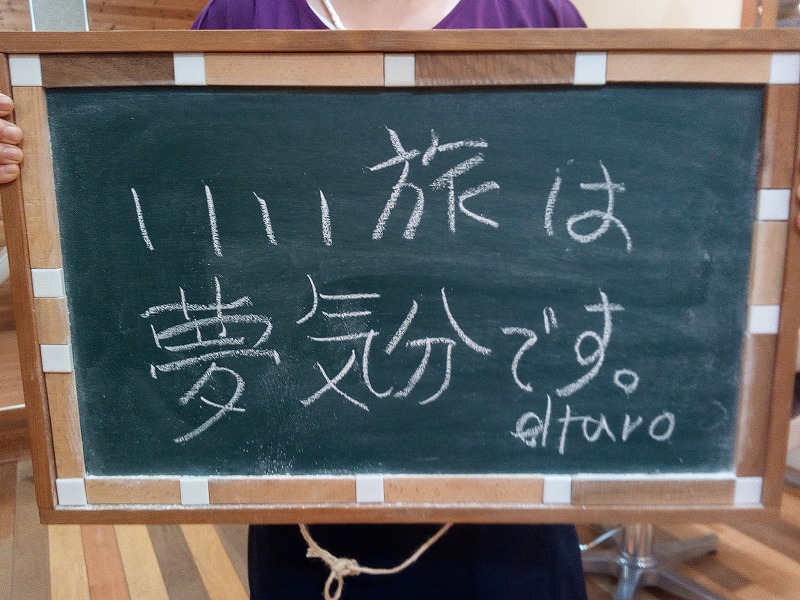 いい旅は
夢気分です。
dtaro